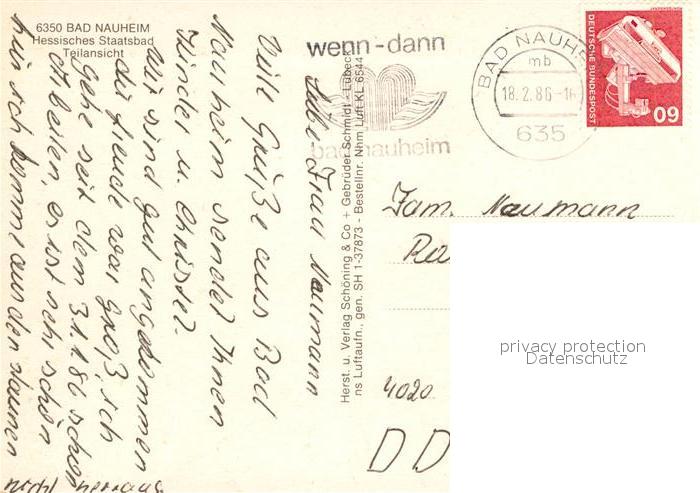 6350 BAD NAUHEIM
Hessisches Staatsbad
Teilansicht
wenn-dann
bad nauheim
BAD NAUHE
mb
18.2.86-16
635
DEUTSCHE BUNDESPOST
60
Herst. u. Verlag Schöning & Co + Gebrüder Schmidt - Lübeck
ns Luftaufn., gen. SH 1-37873 - Bestellnr. Nhm Luft KL 6544
Liebe Frau Naumann
Viele Grüße aus Bad
Nauheim sendet Ihnen
Kinder u. Christel.
Wir sind gut angekommen
die Freude war groß, ich
gehe seit dem 31.1.86 schon
arbeiten, es ist sehr schön
für sich komme aus den Räumen
Fam. Naumann
Ra
4020
DD
privacy protection
Datenschutz